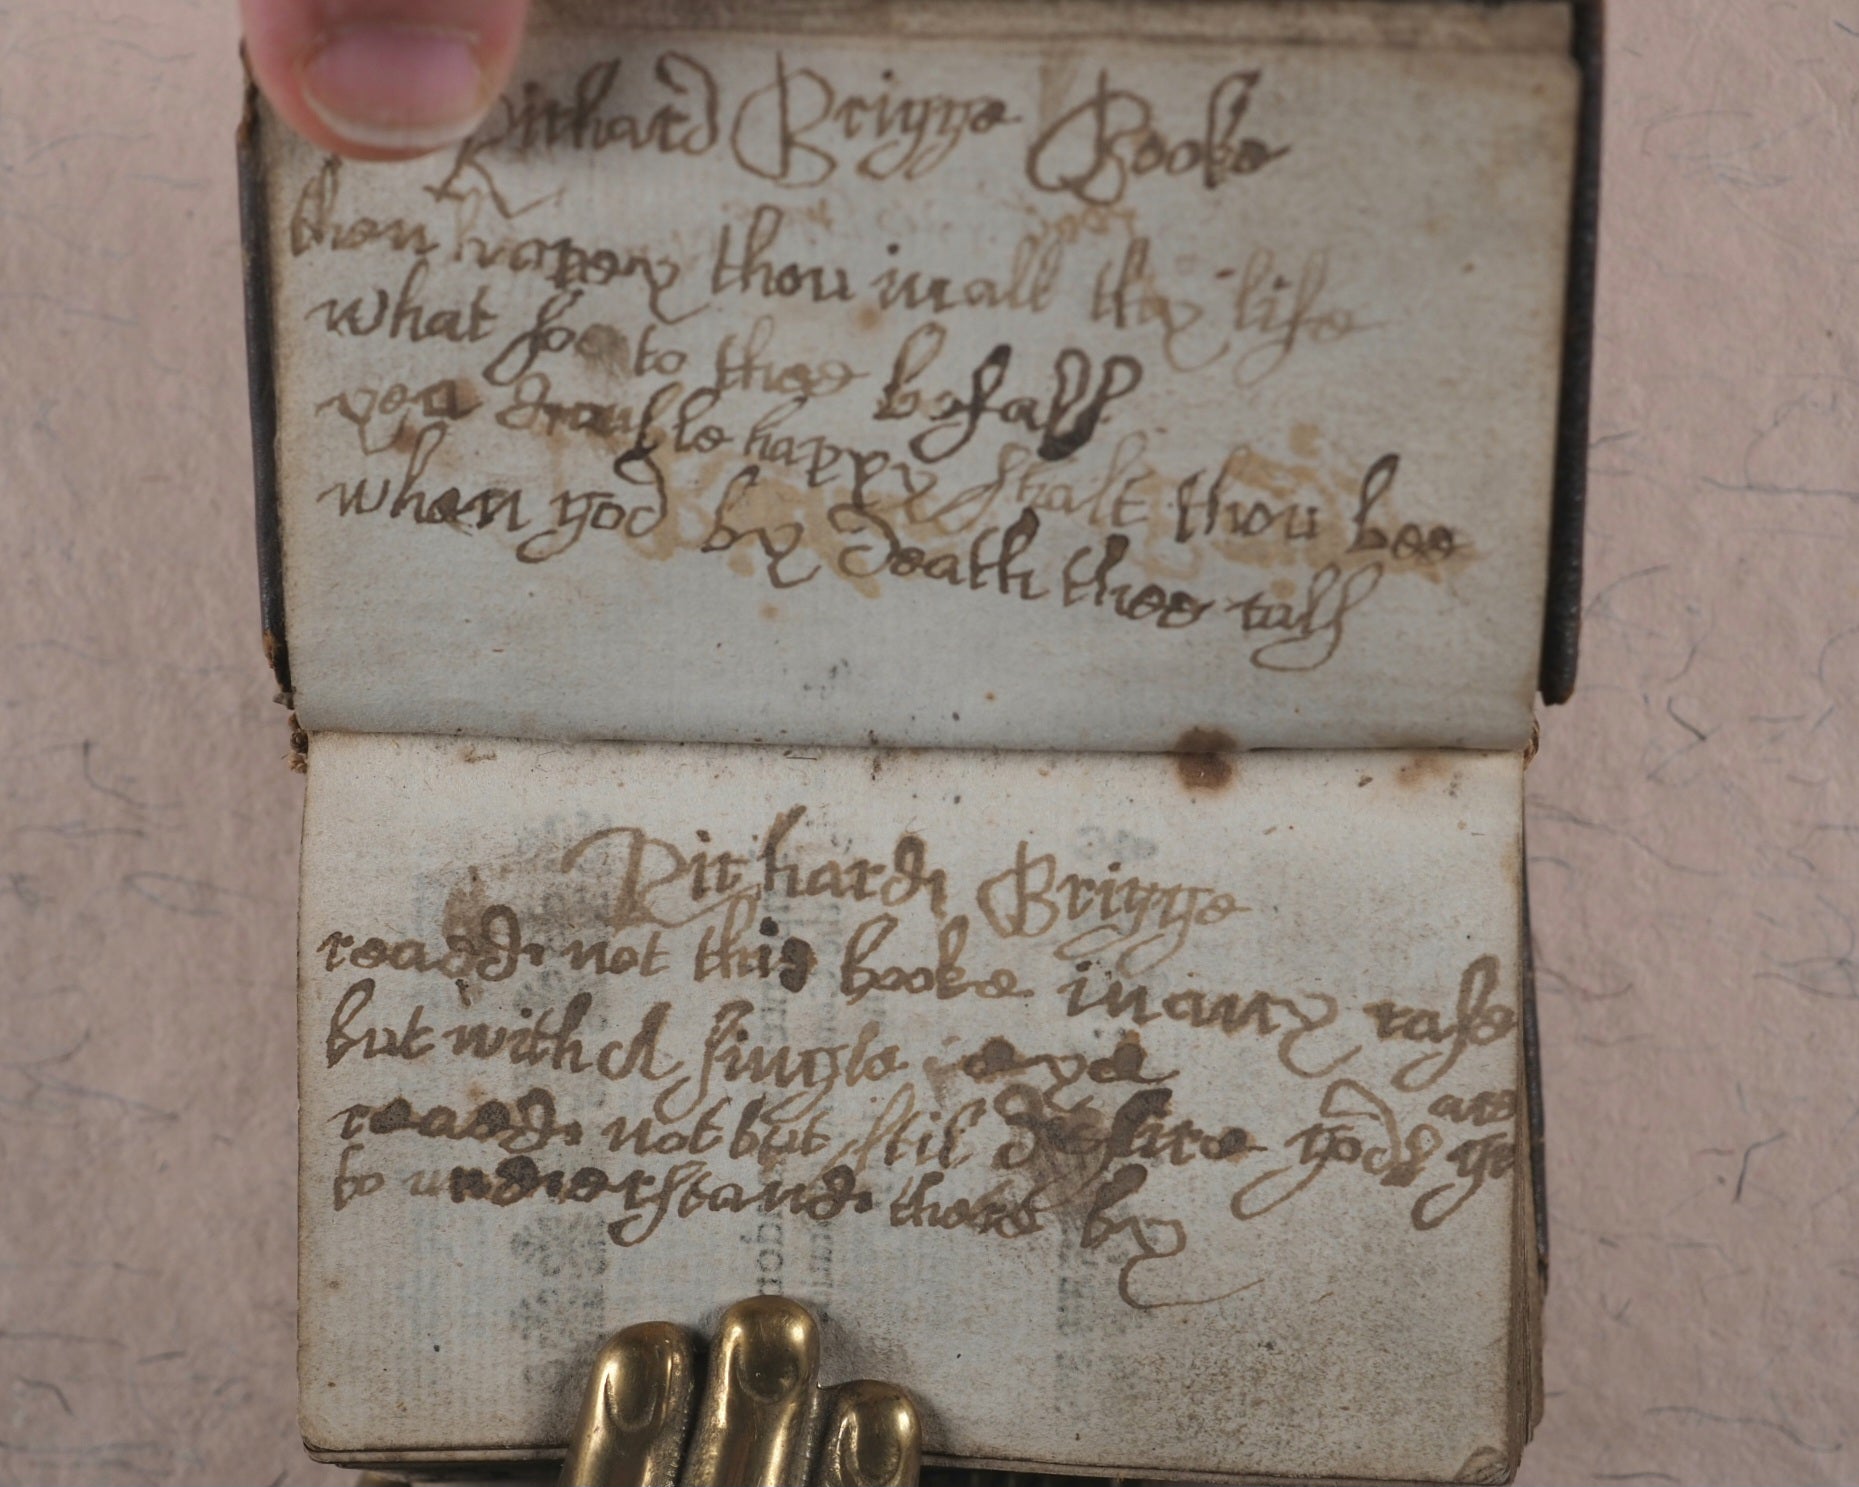 Richard Brigge Booke
then happy thou in all thy life
what so to thee befall
yea double happy shalt thou bee
when god by death thee call
Richard Brigge
readd not this booke in any case
but with A single eye
readd not but still desire gods
to understand thereby